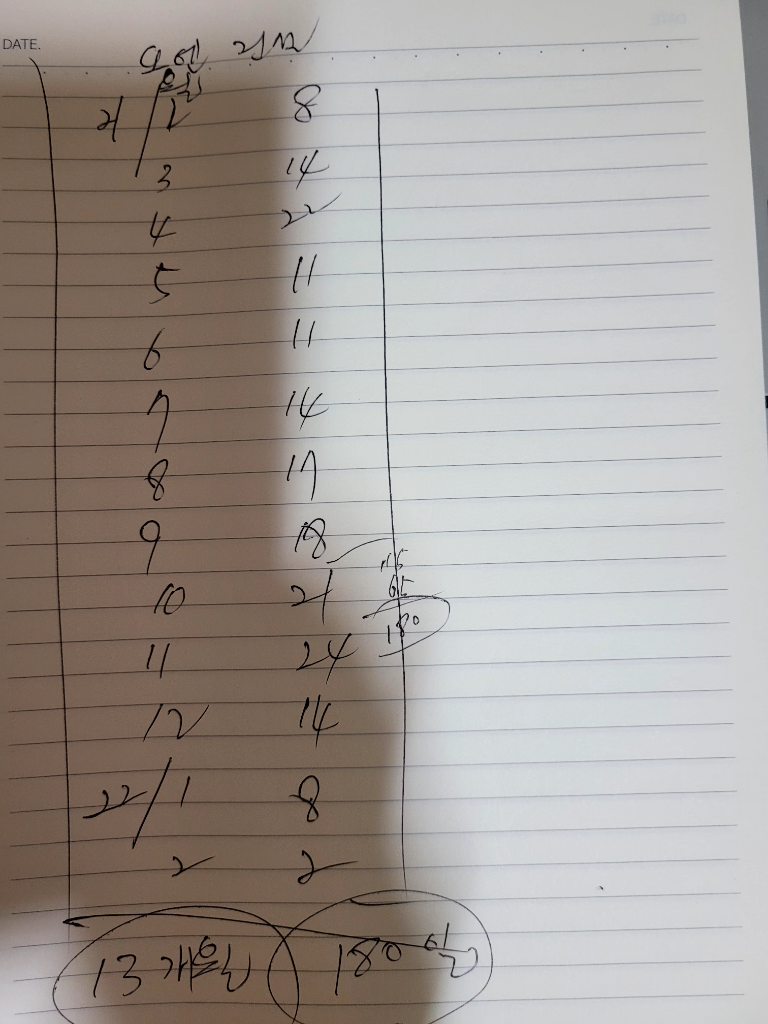 DATE.
21/2 8
3 14
4 22
5 11
6 11
7 14
8 17
9 18
10 21
11 24
12 14
22/1 8
2 2
65
180
13개월 180일